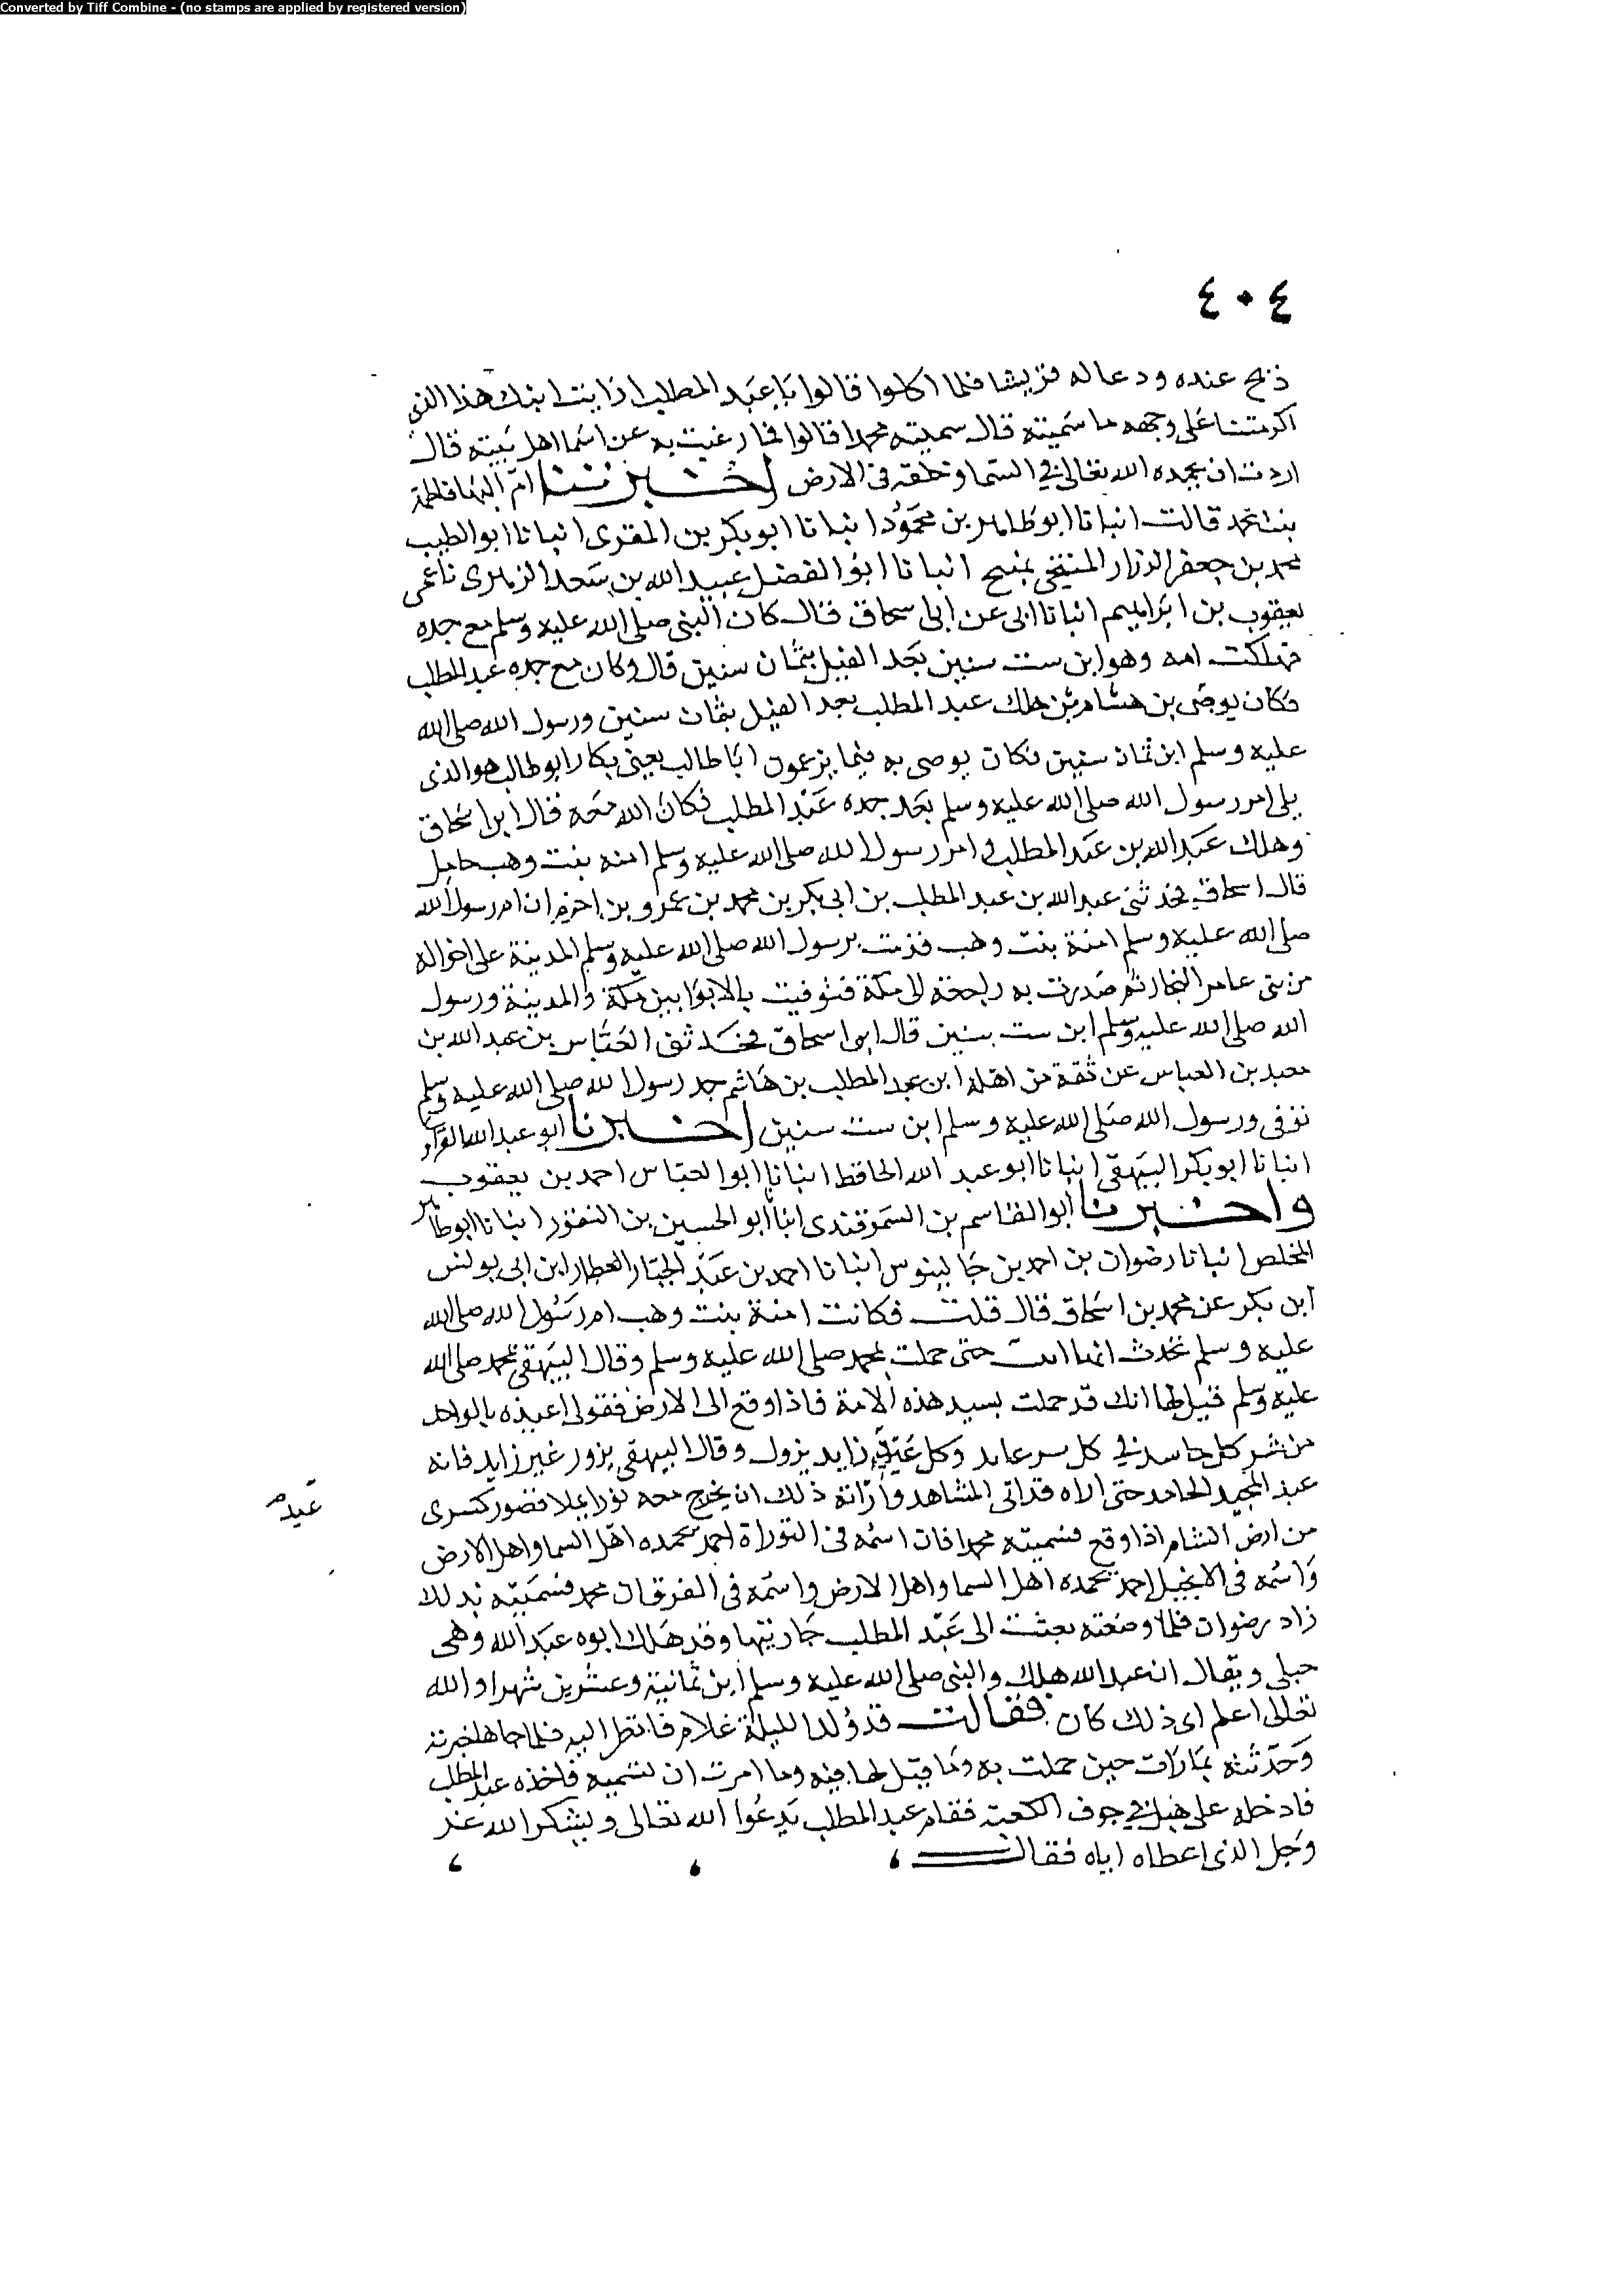 Converted by Tiff Combine - (no stamps are applied by registered version)
٤٠٤
ذبح عنده ودعا له قريشا فلما اكلوا قالوا يا عبد المطلب ارايت ابنك هذا الذى
اكرمتنا على وجهه ما سميته قال سميته محمدا قالوا فما رغبت به عن اسما اهل بيته قال
اردت ان يحمده الله تعالى في السما وخلقه في الارض اخبرتنا ام البها فاطمة
بنت محمد قالت انبانا ابو طاهر بن محمود انبانا ابو بكر بن المقرى انبانا ابو الطيب
محمد بن جعفر الزراد المنبجي بمنبج انبانا ابو الفضل عبيد الله بن سعد الزهرى نا عمى
يعقوب بن ابراهيم انبانا ابى عن ابى اسحاق قال كان النبي صلى الله عليه وسلم مع جده
فهلكت امه وهو ابن ست سنين بعد الفيل بثمان سنين قال وكان مع جده عبد المطلب
فكان يوصى بن هشام هلك عبد المطلب بعد الفيل بثمان سنين ورسول الله صلى الله
عليه وسلم ابن ثمان سنين فكان يوصى به فيما يزعمون ابا طالب يعنى بكار ابو طالب هو الذى
يلى امر رسول الله صلى الله عليه وسلم بعد جده عبد المطلب فكان الله معه قال ابن اسحاق
وهلك عبد الله بن عبد المطلب وام رسول الله صلى الله عليه وسلم امنه بنت وهب حامل
قال اسحاق فحدثنى عبد الله بن عبد المطلب بن ابى بكر بن محمد بن عمرو بن احزم ان ام رسول الله
صلى الله عليه وسلم امنة بنت وهب قدمت برسول الله صلى الله عليه وسلم المدينة على اخواله
من بنى عامر النجار ثم صدرت به راجعة الى مكة فتوفيت بالابوا بين مكة والمدينة ورسول
الله صلى الله عليه وسلم ابن ست سنين قال ابو اسحاق فحدثنى العباس بن عبد الله بن
معبد بن العباس عن ثقة من اهله ابن عبد المطلب بن هاشم جد رسول الله صلى الله عليه وسلم
توفى ورسول الله صلى الله عليه وسلم ابن ست سنين اخبرنا ابو عبد الله الفراو
انبانا ابو بكر البيهقى انبانا ابو عبد الله الحافظ انبانا ابو العباس احمد بن يعقوب
واخبرنا ابو القاسم بن السمرقندى انبا ابو الحسين بن النقور انبانا ابو طاهر
المخلص انبانا رضوان بن احمد بن جالينوس انبانا احمد بن عبد الجبار العطار ابن ابى يونس
ابن بكر عن محمد بن اسحاق قال قلت فكانت امنة بنت وهب ام رسول الله صلى الله
عليه وسلم تحدث انها حتى حملت بمحمد صلى الله عليه وسلم وقال البيهقى محمد صلى الله
عليه وسلم قيل لها انك قد حملت بسيد هذه الامة فاذا وقع الى الارض فقولى اعيذه بالواحد
من شر كل حاسد في كل بر عابد وكل عبد زايد يزول وقال البيهقى يزور غير زايد فانه
عبد المجيد الحامد حتى اراه قد اتى المشاهد واراته ذلك ان يخرج معه نورا يملا قصور كسرى
عبد م
من ارض الشام اذا وقع فسميته محمدا فان اسمه في التوراة احمد يحمده اهل السما واهل الارض
واسمه في الانجيل احمد يحمده اهل السما واهل الارض واسمه في الفرقان محمد فسميته بذلك
زاد رضوان فلما وضعته بعثت الى عبد المطلب جاريتها وقد هلك ابوه عبد الله وهى
حبلى ويقال ان عبد الله هلك والنبى صلى الله عليه وسلم ابن ثمانية وعشرين شهرا والله
تعالى اعلم اى ذلك كان فقالت قد ولد الليلة غلام فانظر اليه فلما جاها اخبرته
وحدثته بما رات حين حملت به وما قيل لها فيه وما امرت ان تسميه فاخذه عبد المطلب
فادخله على هبل في جوف الكعبة فقام عبد المطلب يدعوا الله تعالى ويشكر الله عز
وجل الذى اعطاه اياه فقال